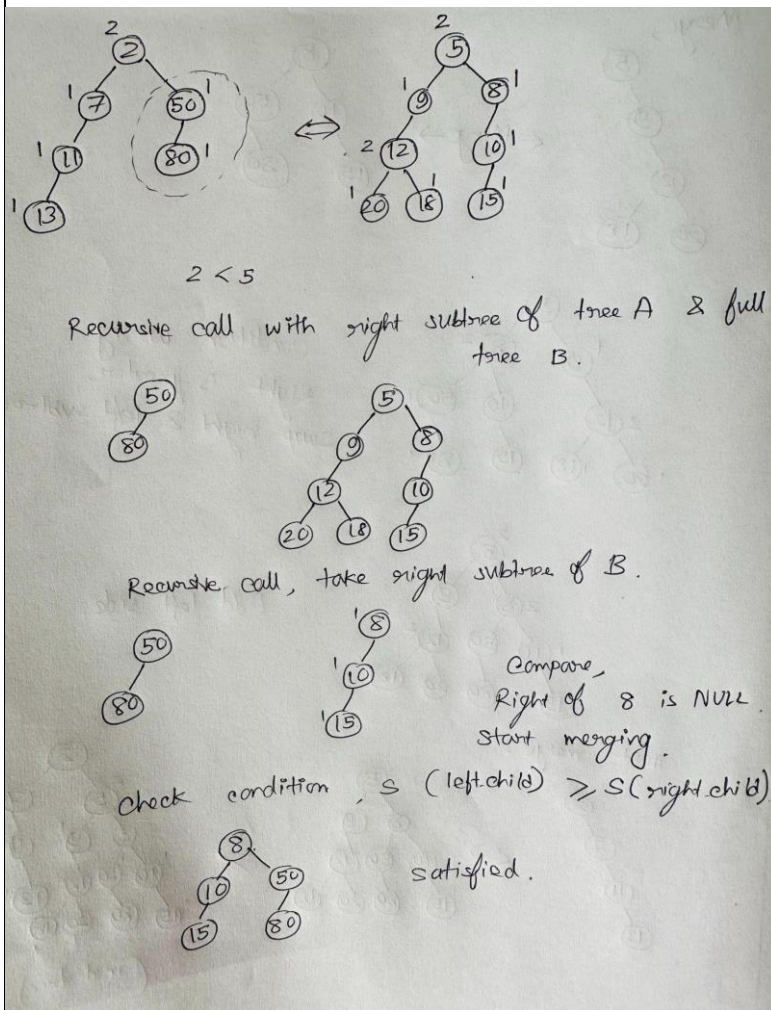 2 2
2 5
1 7 50 1 1 9 8 1
⇔
1 11 80 1 2 12 10 1
1 13 1 20 1 18 15 1
2 < 5
Recursive call with right subtree of tree A & full
tree B.
50 5
80 9 8
12 10
20 18 15
Recursive call, take right subtree of B.
50 1 8
80 1 10
1 15
Compare,
Right of 8 is NULL.
Start merging.
Check condition, S (left.child) ⩾ S(right.child)
8
10 50 satisfied.
15 80